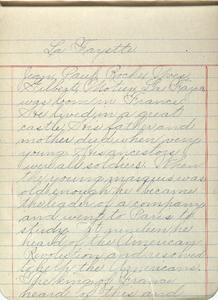 La Fayette
Jean Paul Roches Yves
Gilbert Motier La Faye
was born in France
He lived in a great
castle. His father and
mother died when very
young. His ancestors
were all soldiers. When
the young marquis was
old enough he became
the leader of a company
and went to Paris to
study. At nineteen he
heard of the American
Revolution and resolved
to help the Americans.
The king of France
heard of this and